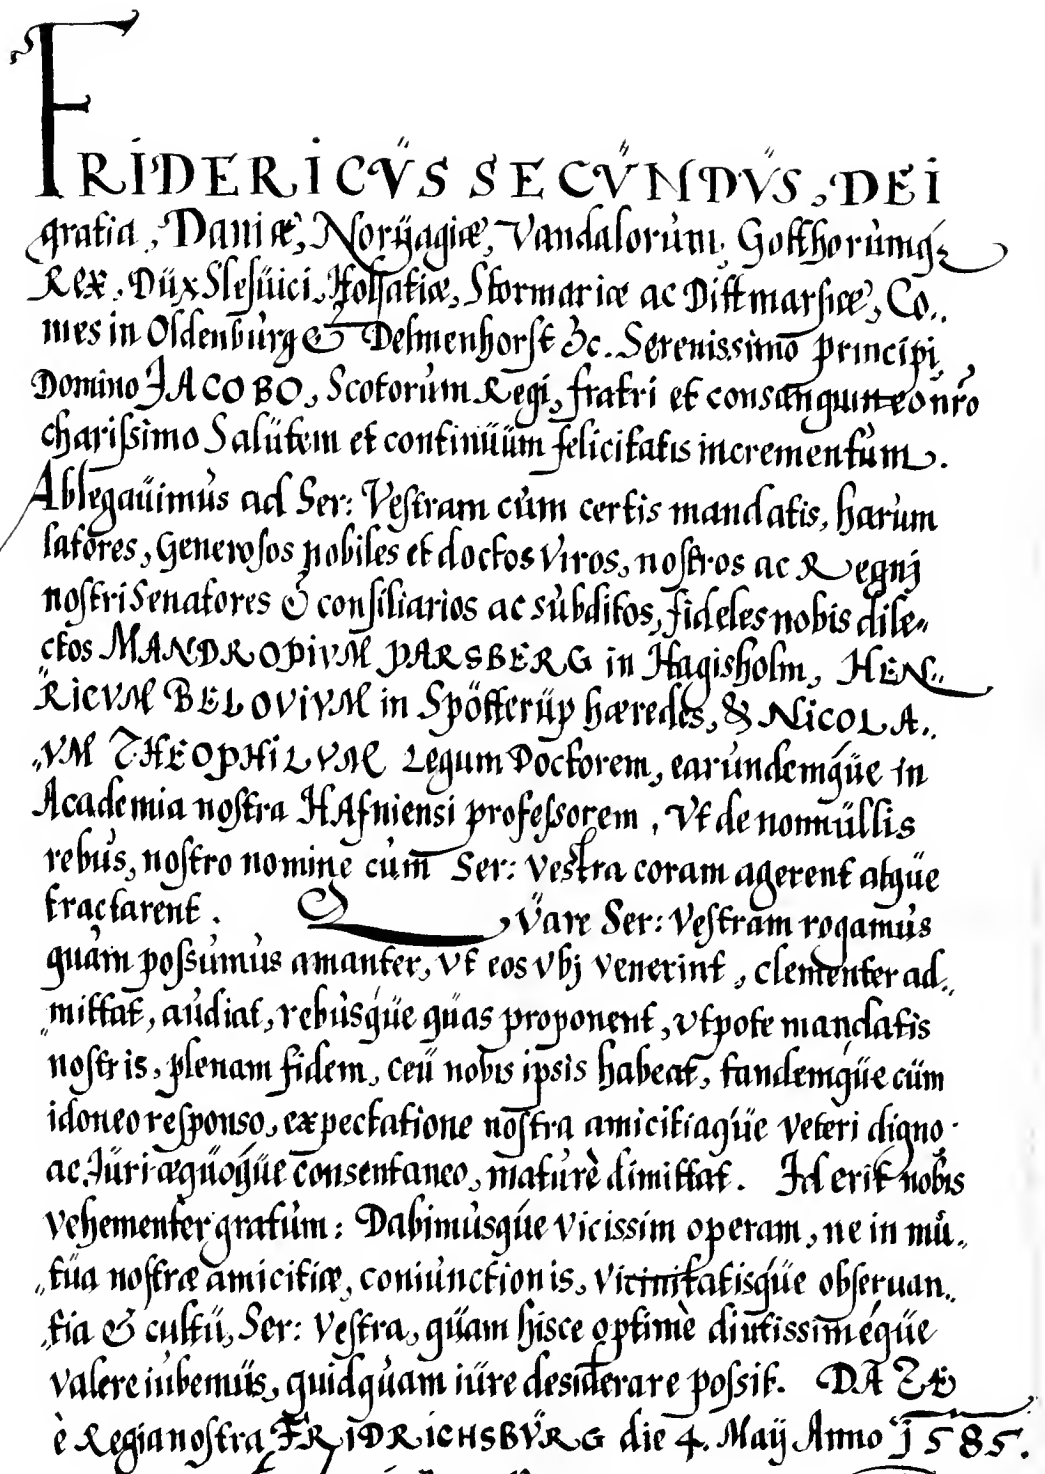 FRIDERICVS SECVNDVS, DEI
gratia, Daniæ, Norvagiæ, Vandalorum, Gotthorumq;
Rex, Dux Slesuici, Holsatiæ, Stormariæ ac Dittmarsiæ, Co..
mes in Oldenburg & Delmenhorst &c. Serenissimo principi,
Domino JACOBO, Scotorum Regi, fratri et consanguineo nr̃o
charissimo Salutem et continuum felicitatis incrementum.
Ablegauimus ad Ser: Vestram cum certis mandatis, harum
latores, Generosos nobiles et doctos Viros, nostros ac Regnj
nostri Senatores & consiliarios ac subditos, fideles nobis dile-
ctos MANDROPIVM PARSBERG in Hagisholm, HEN..
RICVM BELOVIVM in Spötterup hæredes, & NICOLA..
VM THEOPHILVM Legum Doctorem, earundemque in
Academia nostra HAfniensi professorem, Vt de nonnullis
rebus, nostro nomine cum Ser: Vestra coram agerent atque
tractarent. Quare Ser: Vestram rogamus
quam possumus amanter, Vt eos Vbj Venerint, clementer ad..
mittat, audiat, rebusque quas proponent, Vtpote mandatis
nostris, plenam fidem, ceu nobis ipsis habeat, tandemque cum
idoneo responso, expectatione nostra amicitiaque Veteri digno
ac Juri æquoque consentaneo, maturè dimittat. Id erit nobis
Vehementer gratum: Dabimusque Vicissim operam, ne in mu..
tua nostræ amicitiæ, coniunctionis, Vicinitatisque obseruan..
tia & cultu, Ser: Vestra, quam hisce optimè diutissiméque
Valere iubemus, quidquam iure desiderare possit. DATÆ
è Regia nostra FRIDRICHSBVRG die 4. Maij Anno 1585.